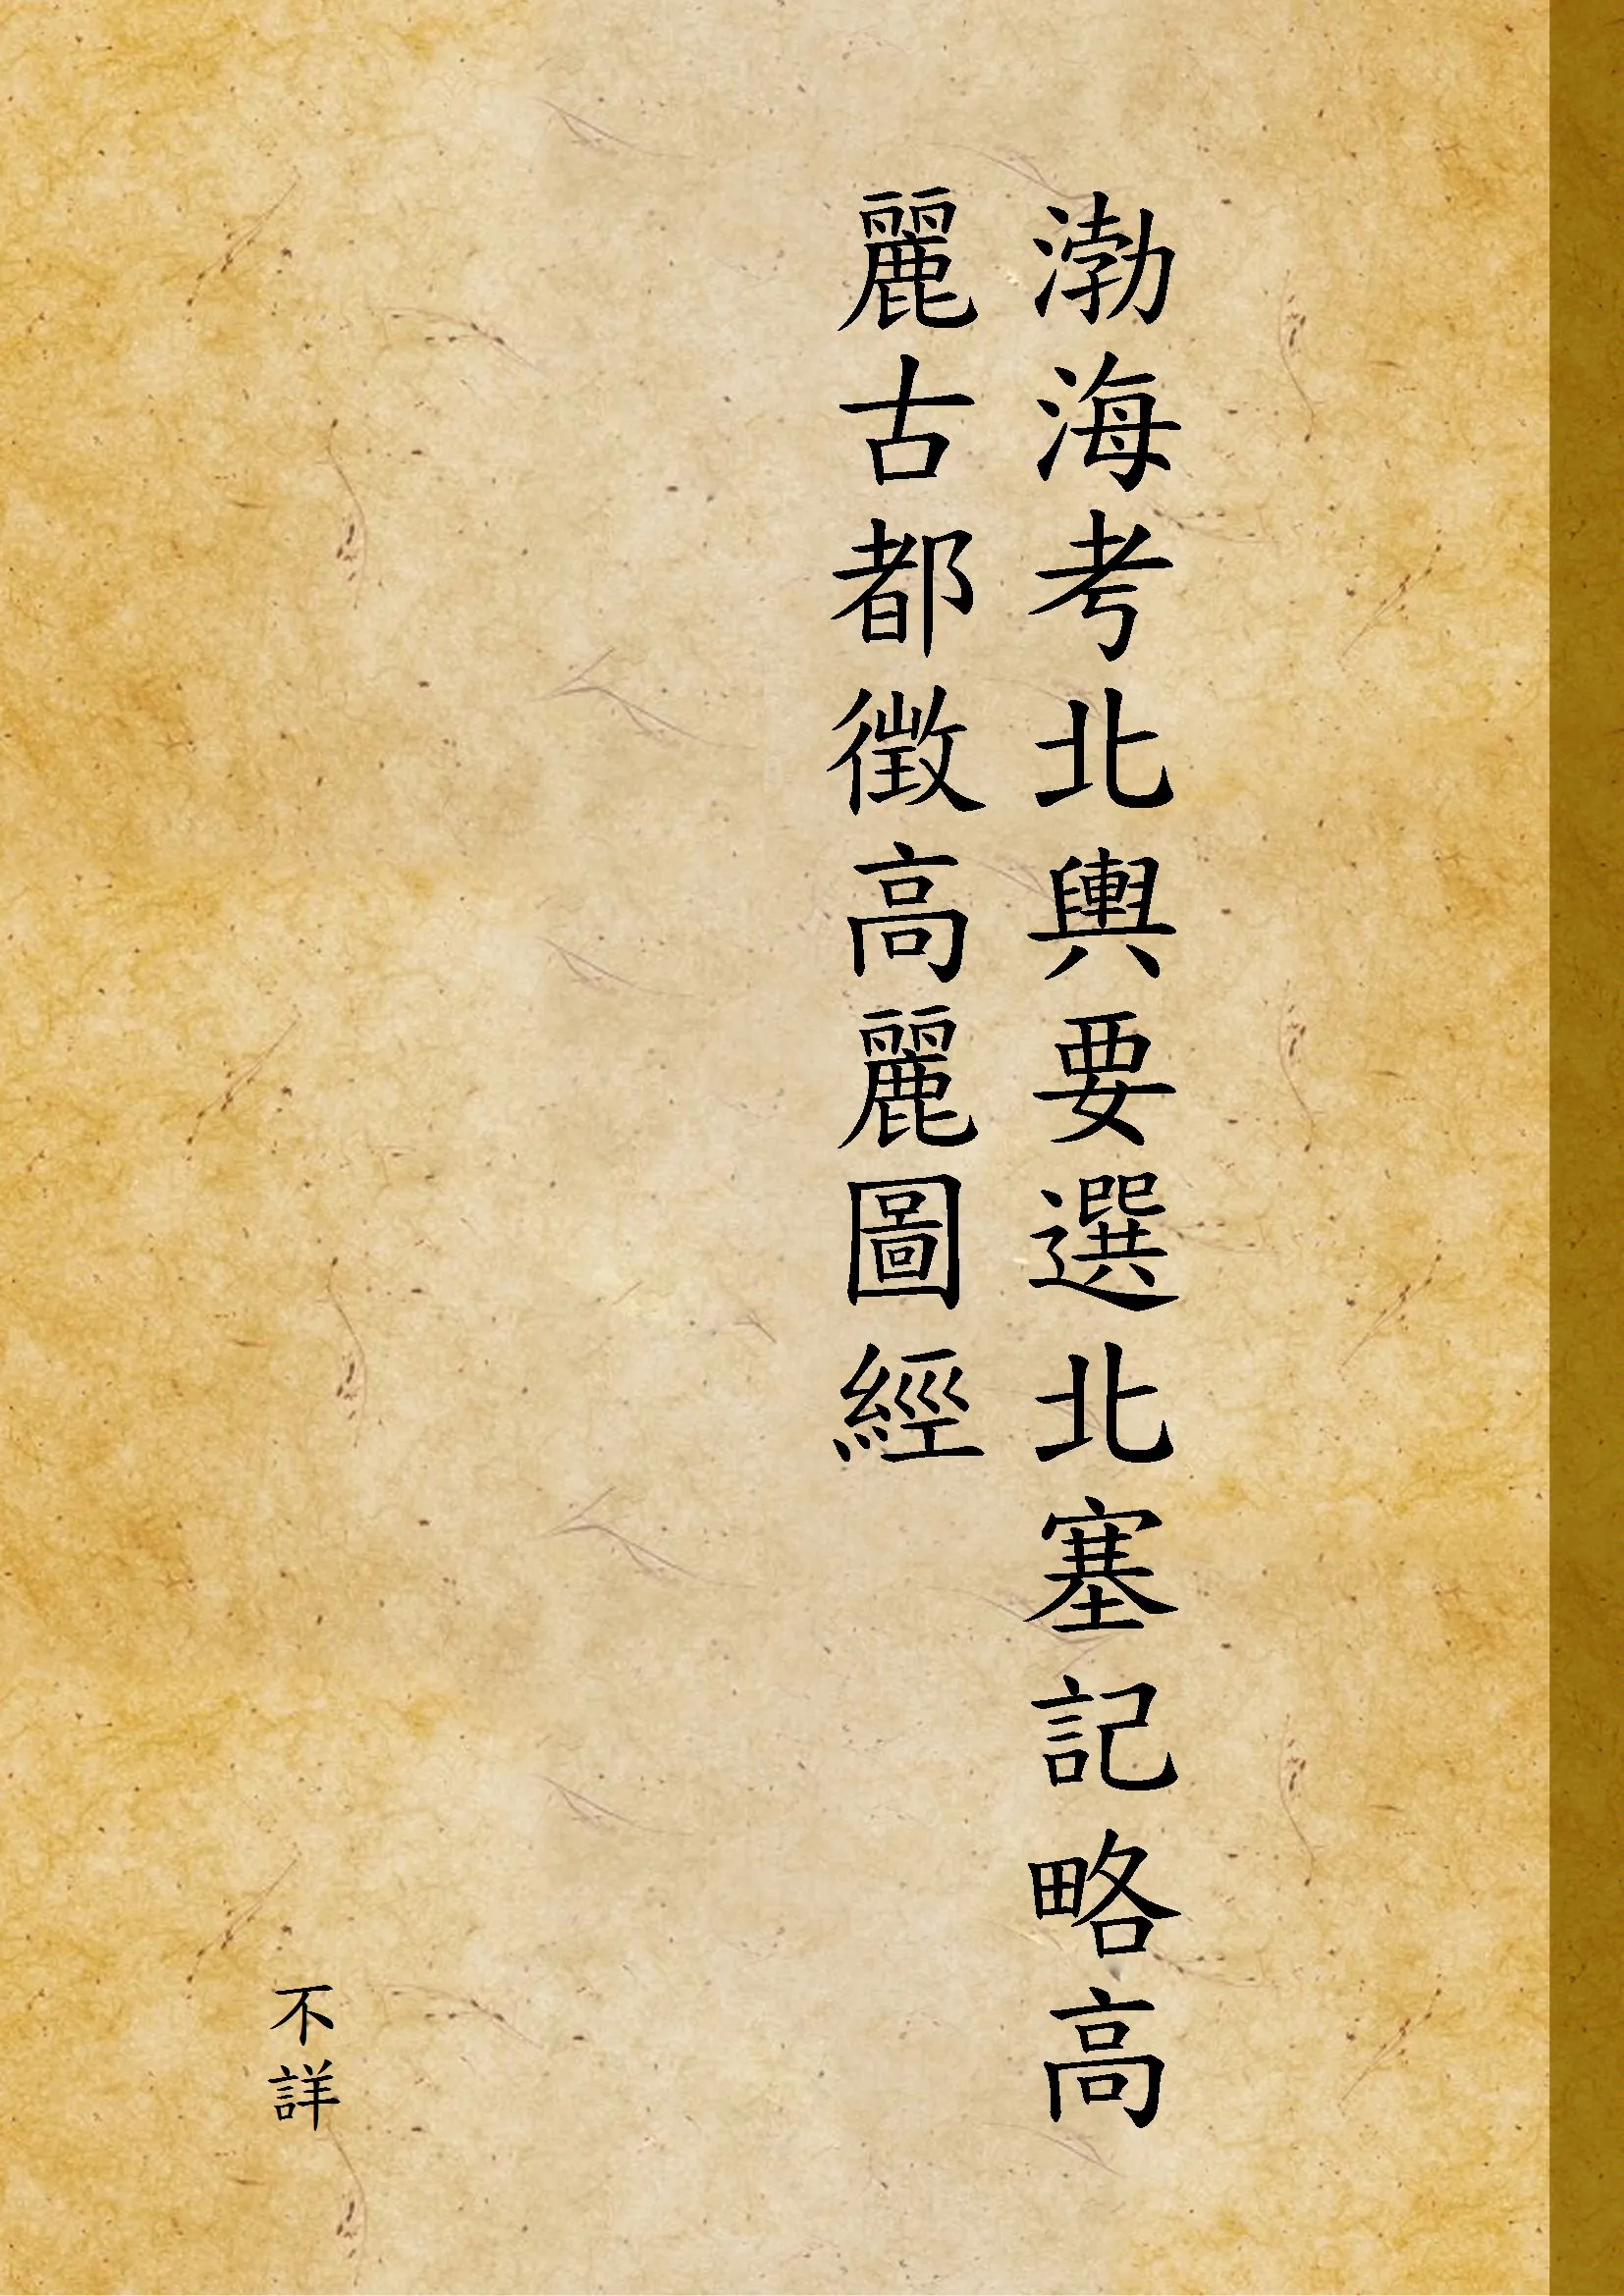 渤海考北輿要選北塞記略高
麗古都徵高麗圖經
不詳